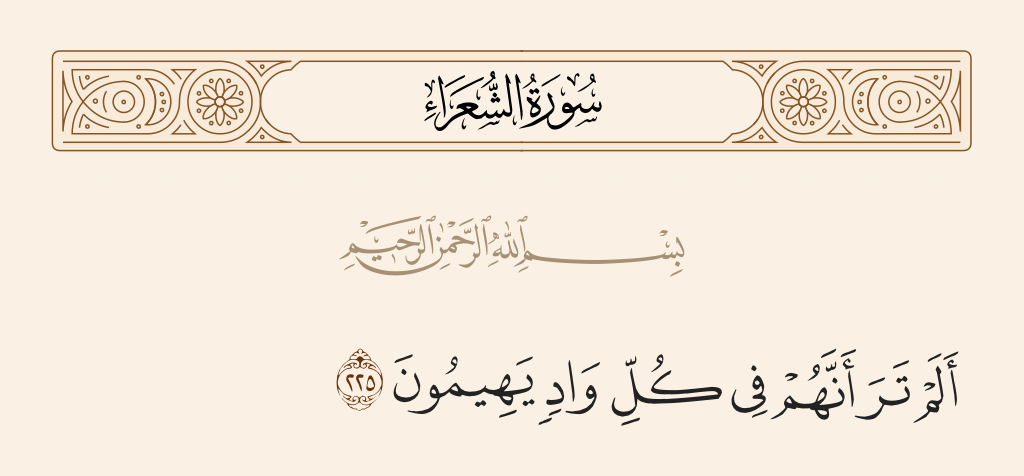 سُورَةُ الشُّعَرَاءِ
بِسْمِ ٱللَّهِ ٱلرَّحْمَٰنِ ٱلرَّحِيمِ
أَلَمْ تَرَ أَنَّهُمْ فِى كُلِّ وَادٍ يَهِيمُونَ ٢٢٥